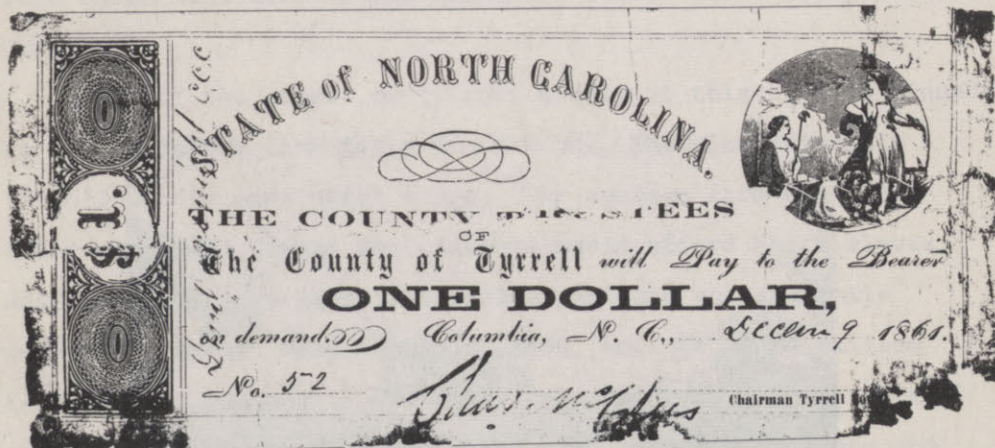 STATE of NORTH CAROLINA.
$1.
THE COUNTY
OF
The County of Tyrrell will Pay to the Bearer
ONE DOLLAR,
on demand. Columbia, N. C., Decem 9 1861.
No. 52
Chairman Tyrrell